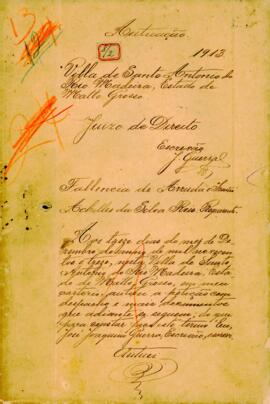 13
Autuação
1/2
1913
Villa de Santo Antonio do
Rio Madeira, Estado de
Matto Grosso
Juizo de Direito
Escrivão
J. Guerra
Fallencia de Arruda
Achilles da Silva Reis Requerente
Aos treze dias do mez de De
zembro de mil novecen
tos e treze, nesta Villa de Santo
Antonio do Rio Madeira, Esta
do de Matto Grosso, em meu
cartorio, autuo a petição com
despacho e mais documentos
que adiante se seguem; do que
para constar faço este termo. Eu,
José Joaquim Guerra, Escrivão, escrevi